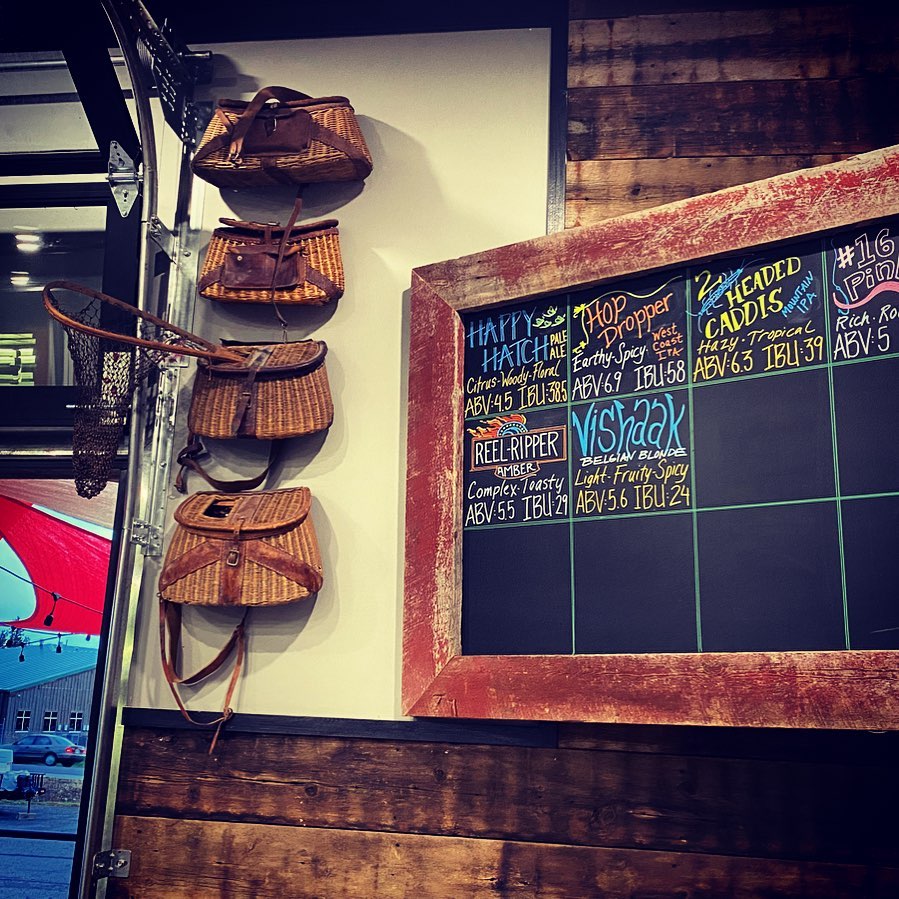 HAPPY
HATCH PALE
ALE
Citrus-Woody-Floral
ABV:4.5 IBU:38.5
Hop
Dropper
Earthy-Spicy West
Coast
IPA
ABV:6.9 IBU:58
2 HEADED
CADDIS MOUNTAIN
IPA
Hazy-Tropical
ABV:6.3 IBU:39
#16
Rich-
ABV:5
REEL-RIPPER
AMBER
Complex-Toasty
ABV:5.5 IBU:29
Vishaak
BELGIAN BLONDE
Light-Fruity-Spicy
ABV:5.6 IBU:24